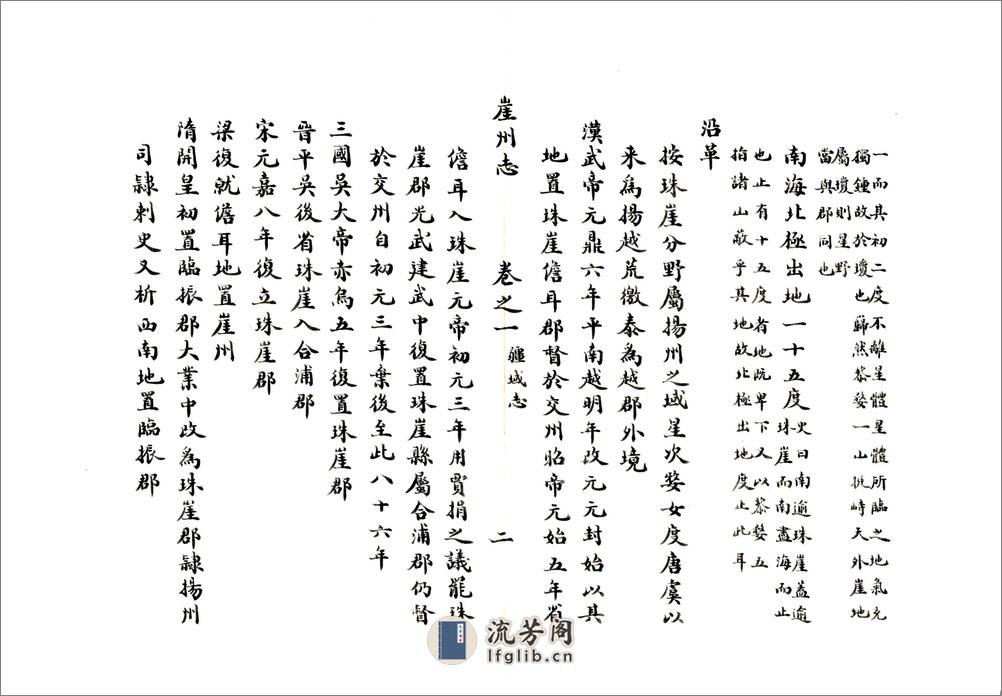 一而其初二度不離星體星體所臨之地氣允
獨鍾故於瓊也歸然黎婺一山挑峙天外崖地
屬瓊則星野
當與郡同也
南海北極出地一十五度史曰南逾珠崖蓋逾
珠崖而南盡海而止
也止有十五度者地既卑下又以黎婺五
指諸山蔽乎其地故北極出地度止此耳
沿革
按珠崖分野屬揚州之域星次婺女度唐虞以
來為揚越荒徼秦為越郡外境
漢武帝元鼎六年平南越明年改元元封始以其
地置珠崖儋耳郡督於交州昭帝元始五年省
崖州志 卷之一 疆域志 二
儋耳入珠崖元帝初元三年用賈捐之議罷珠
崖郡光武建武中復置珠崖縣屬合浦郡仍督
於交州自初元三年棄後至此八十六年
三國吳大帝赤烏五年復置珠崖郡
晉平吳後省珠崖入合浦郡
宋元嘉八年復立珠崖郡
梁復就儋耳地置崖州
隋開皇初置臨振郡大業中改為珠崖郡隸揚州
司隸刺史又析西南地置臨振郡
流芳阁
lfglib.cn